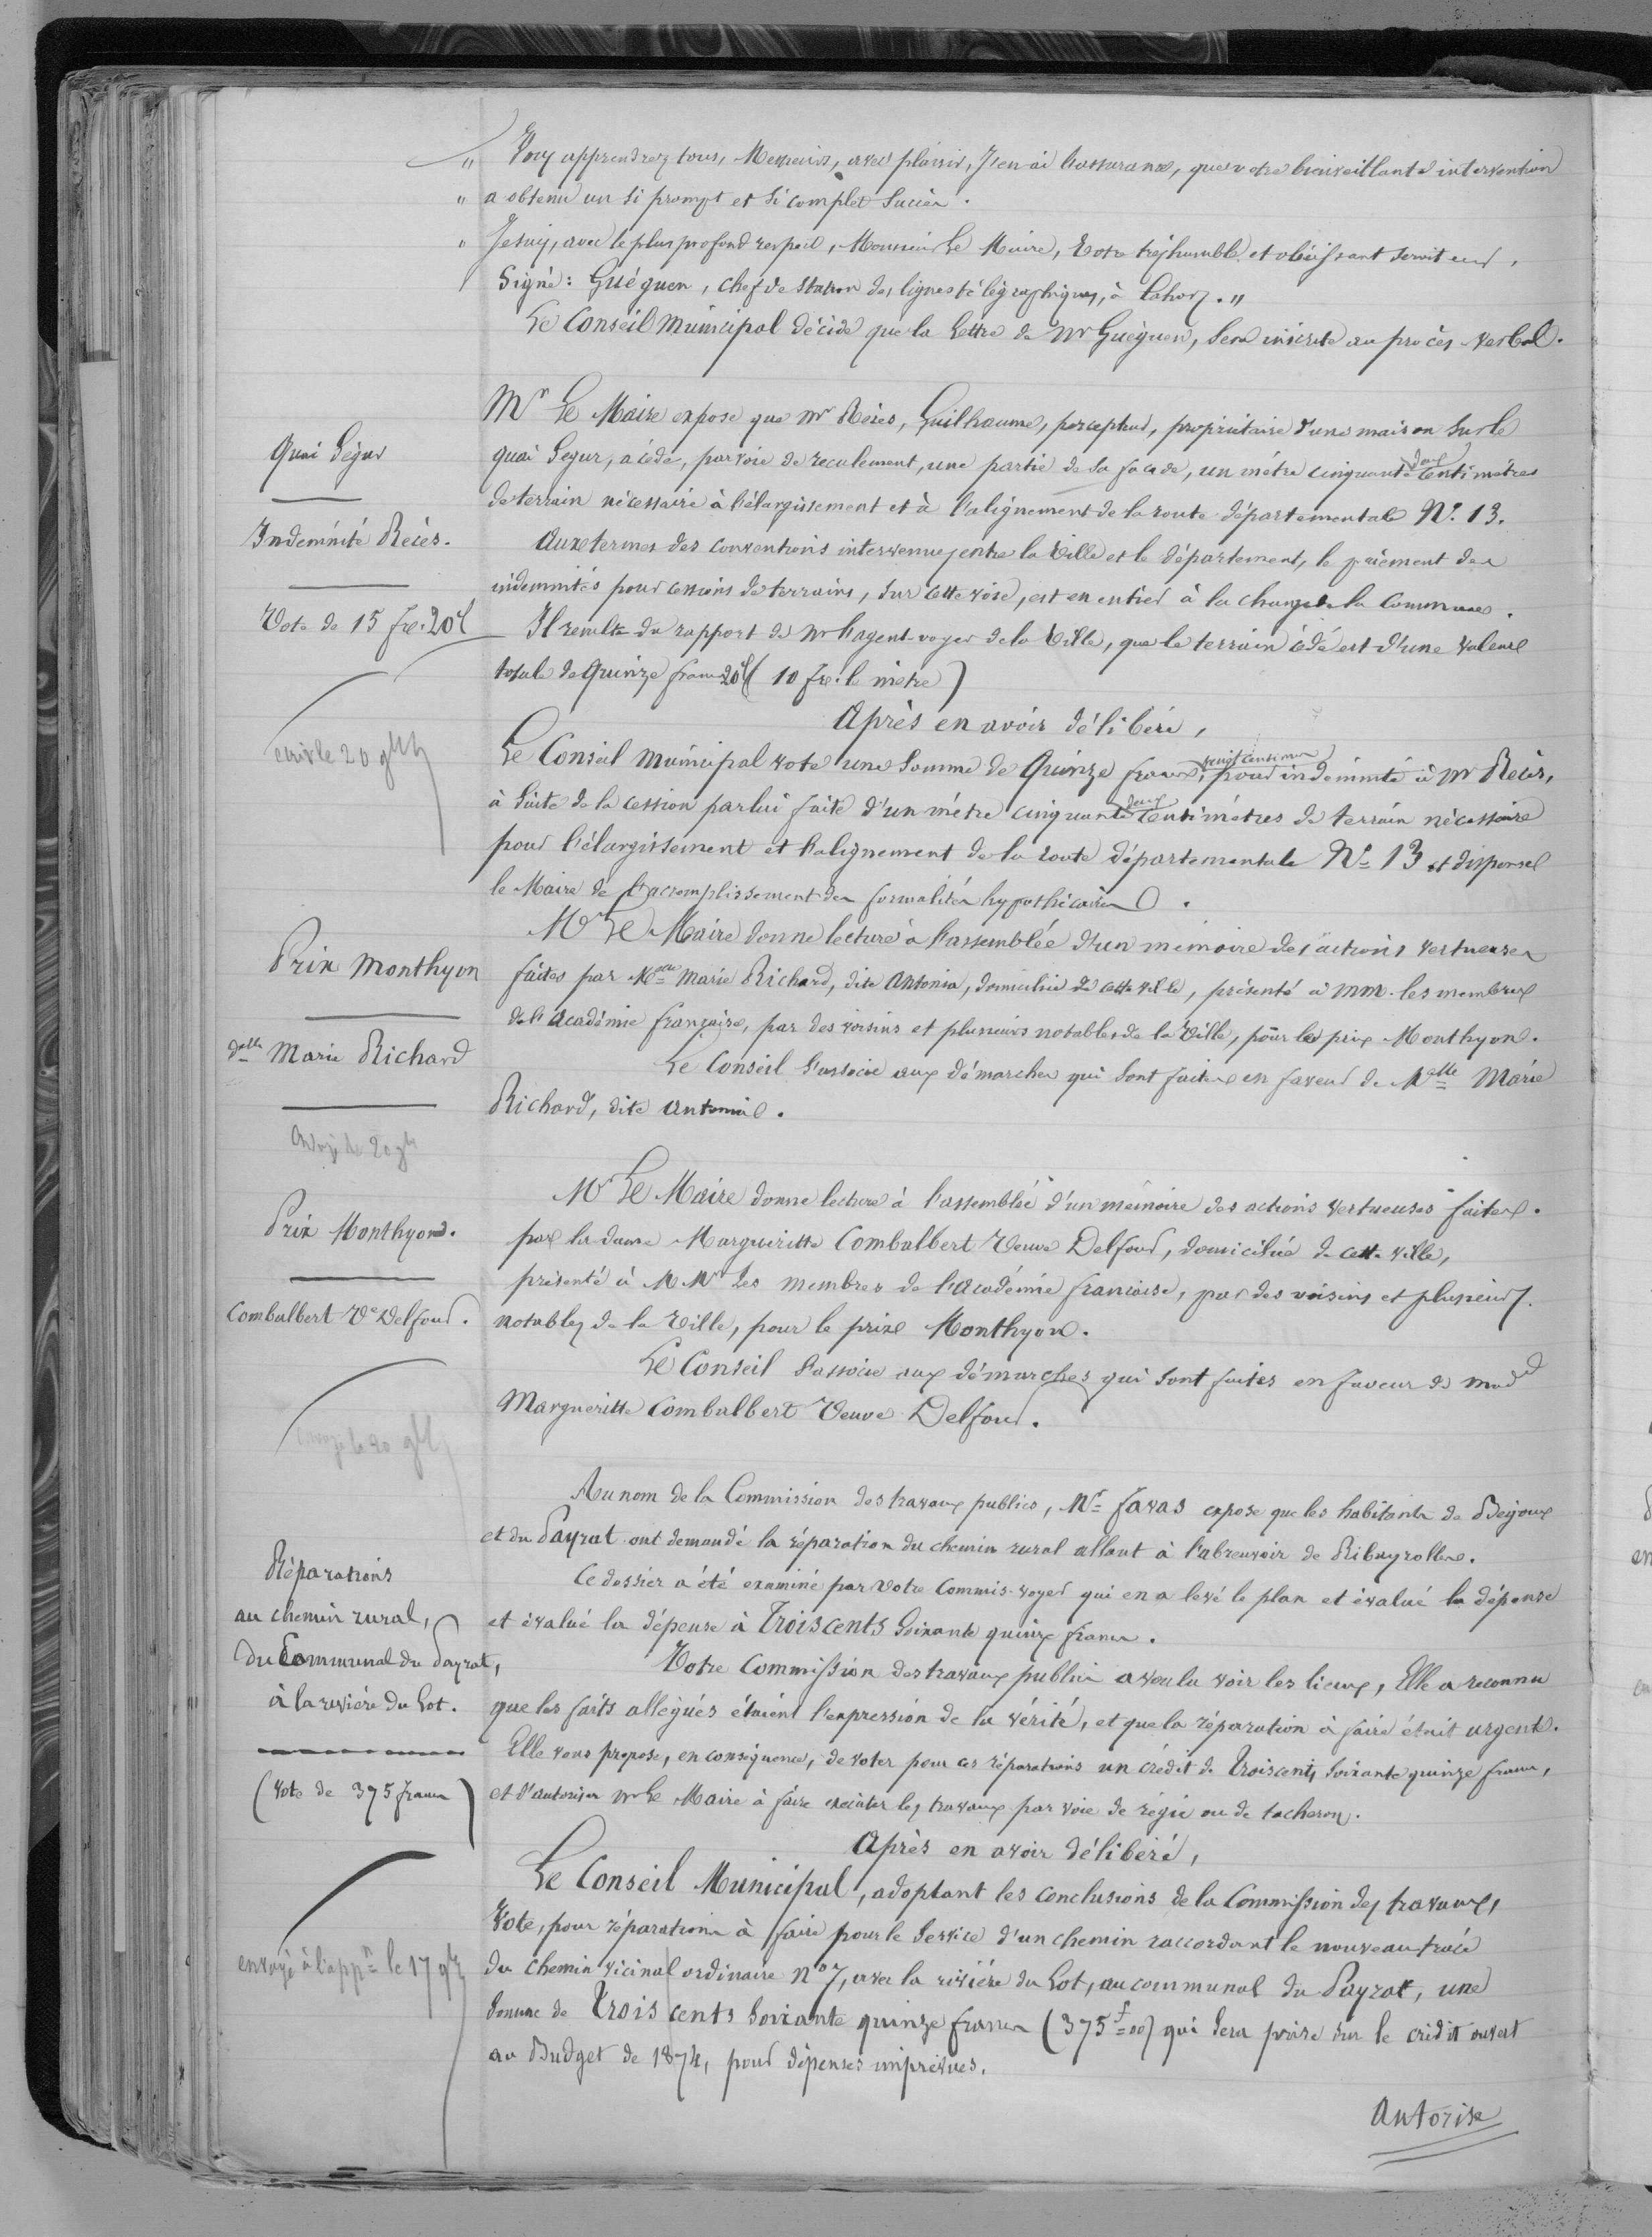 " Vous apprendrez tous, Messieurs, avec plaisir, J'en ai l'assurance, que votre bienveillante intervention
" a obtenu un si prompt et si complet Succès.
" Je suis, avec le plus profond respect, Monsieur Le Maire, Votre très humble et obéissant Serviteur,
Signé : Guéguen, Chef de Station des lignes télégraphiques, à Cahors. "
Le Conseil Municipal décide que la Lettre de Mr Guéguen, Sera insérée au procès-verbal.
Quai Ségur
Indemnité Récès.
Vote de 15 frs. 20c
écrit le 20 9bre
Mr Le Maire expose que Mr Récès, Guilhaume, percepteur, propriétaire d'une maison Sur le
quai Segur, a cédé, par voie de reculement, une partie de Sa façade, un mètre cinquante deux Centimètres
de terrain nécessaire à l'élargissement et à l'alignement de la route départementale N° 13.
Aux termes des conventions intervenues entre la Ville et le département, le paiement des
indemnités pour cessions de terrains, Sur cette voie, est en entier à la charge de la Commune.
Il résulte du rapport de Mr l'agent-voyer de la Ville, que le terrain cédé est d'une valeur
totale de Quinze francs 20c ( 10 frs. le mètre )
Après en avoir délibéré,
Le Conseil Municipal vote une Somme de Quinze francs, vingt centimes pour indemnité à Mr Récès,
à Suite de la cession par lui faite d'un mètre cinquante deux Centimètres de terrain nécessaire
pour l'élargissement et l'alignement de la route départementale N° 13 et dispense
le Maire de l'accomplissement des formalités hypothécaires.
Prix Monthyon
dlle Marie Richard
Envoyé le 20 9bre
Mr Le Maire donne lecture à l'assemblée d'un mémoire des actions vertueuses
faites par Melle Marie Richard, dite Antonia, domiciliée de cette ville, présenté à MM. les membres
de l'Académie française, par des voisins et plusieurs notables de la Ville, pour les prix Monthyon.
Le Conseil S'associe aux démarches qui Sont faites en faveur de Melle Marie
Richard, dite Antonia.
Prix Monthyon.
Combalbert Ve Delfour.
Envoyé le 20 9bre
Mr Le Maire donne lecture à l'assemblée d'un mémoire des actions vertueuses faites.
par la dame Margueritte Combalbert Veuve Delfour, domiciliée de cette ville,
présenté à MMrs Les membres de l'Académie francaise, par des voisins et plusieurs
notables de la Ville, pour le prix Monthyon.
Le Conseil S'associe aux démarches qui Sont faites en faveur de Made
Margueritte Combalbert Veuve Delfour.
Réparations
au chemin rural,
du Communal du Payrat,
à la rivière du Lot.
(Vote de 375 francs)
envoyé à l'appon le 17 9bre
Au nom de la Commission des travaux publics, Mr Favas expose que les habitants de Bégoux
et du Payrat ont demandé la réparation du chemin rural allant à l'abreuvoir de Ribayrolles.
Ce dossier a été examiné par votre Commis-voyer qui en a levé le plan et évalué la dépense
et évalué la dépense à Trois cents Soixante quinze francs.
Votre Commission des travaux publics a voulu voir les lieux, Elle a reconnu
que les faits allégués étaient l'expression de la vérité, et que la réparation à faire était urgente.
Elle vous propose, en conséquence, de voter pour ces réparations un crédit de Trois cents Soixante quinze francs,
et d'autoriser Mr Le Maire à faire exécuter les travaux par voie de régie ou de tacheron.
Après en avoir délibéré,
Le Conseil Municipal, adoptant les conclusions de la Commission des travaux,
Vote, pour réparations à faire pour le Service d'un chemin raccordant le nouveau tracé
du chemin vicinal ordinaire n° 7, avec la rivière du Lot, au communal du Payrat, une
Somme de Trois cents Soixante quinze francs (375f=00) qui Sera prise Sur le crédit ouvert
au Budget de 1874, pour dépenses imprévues.
Autorise